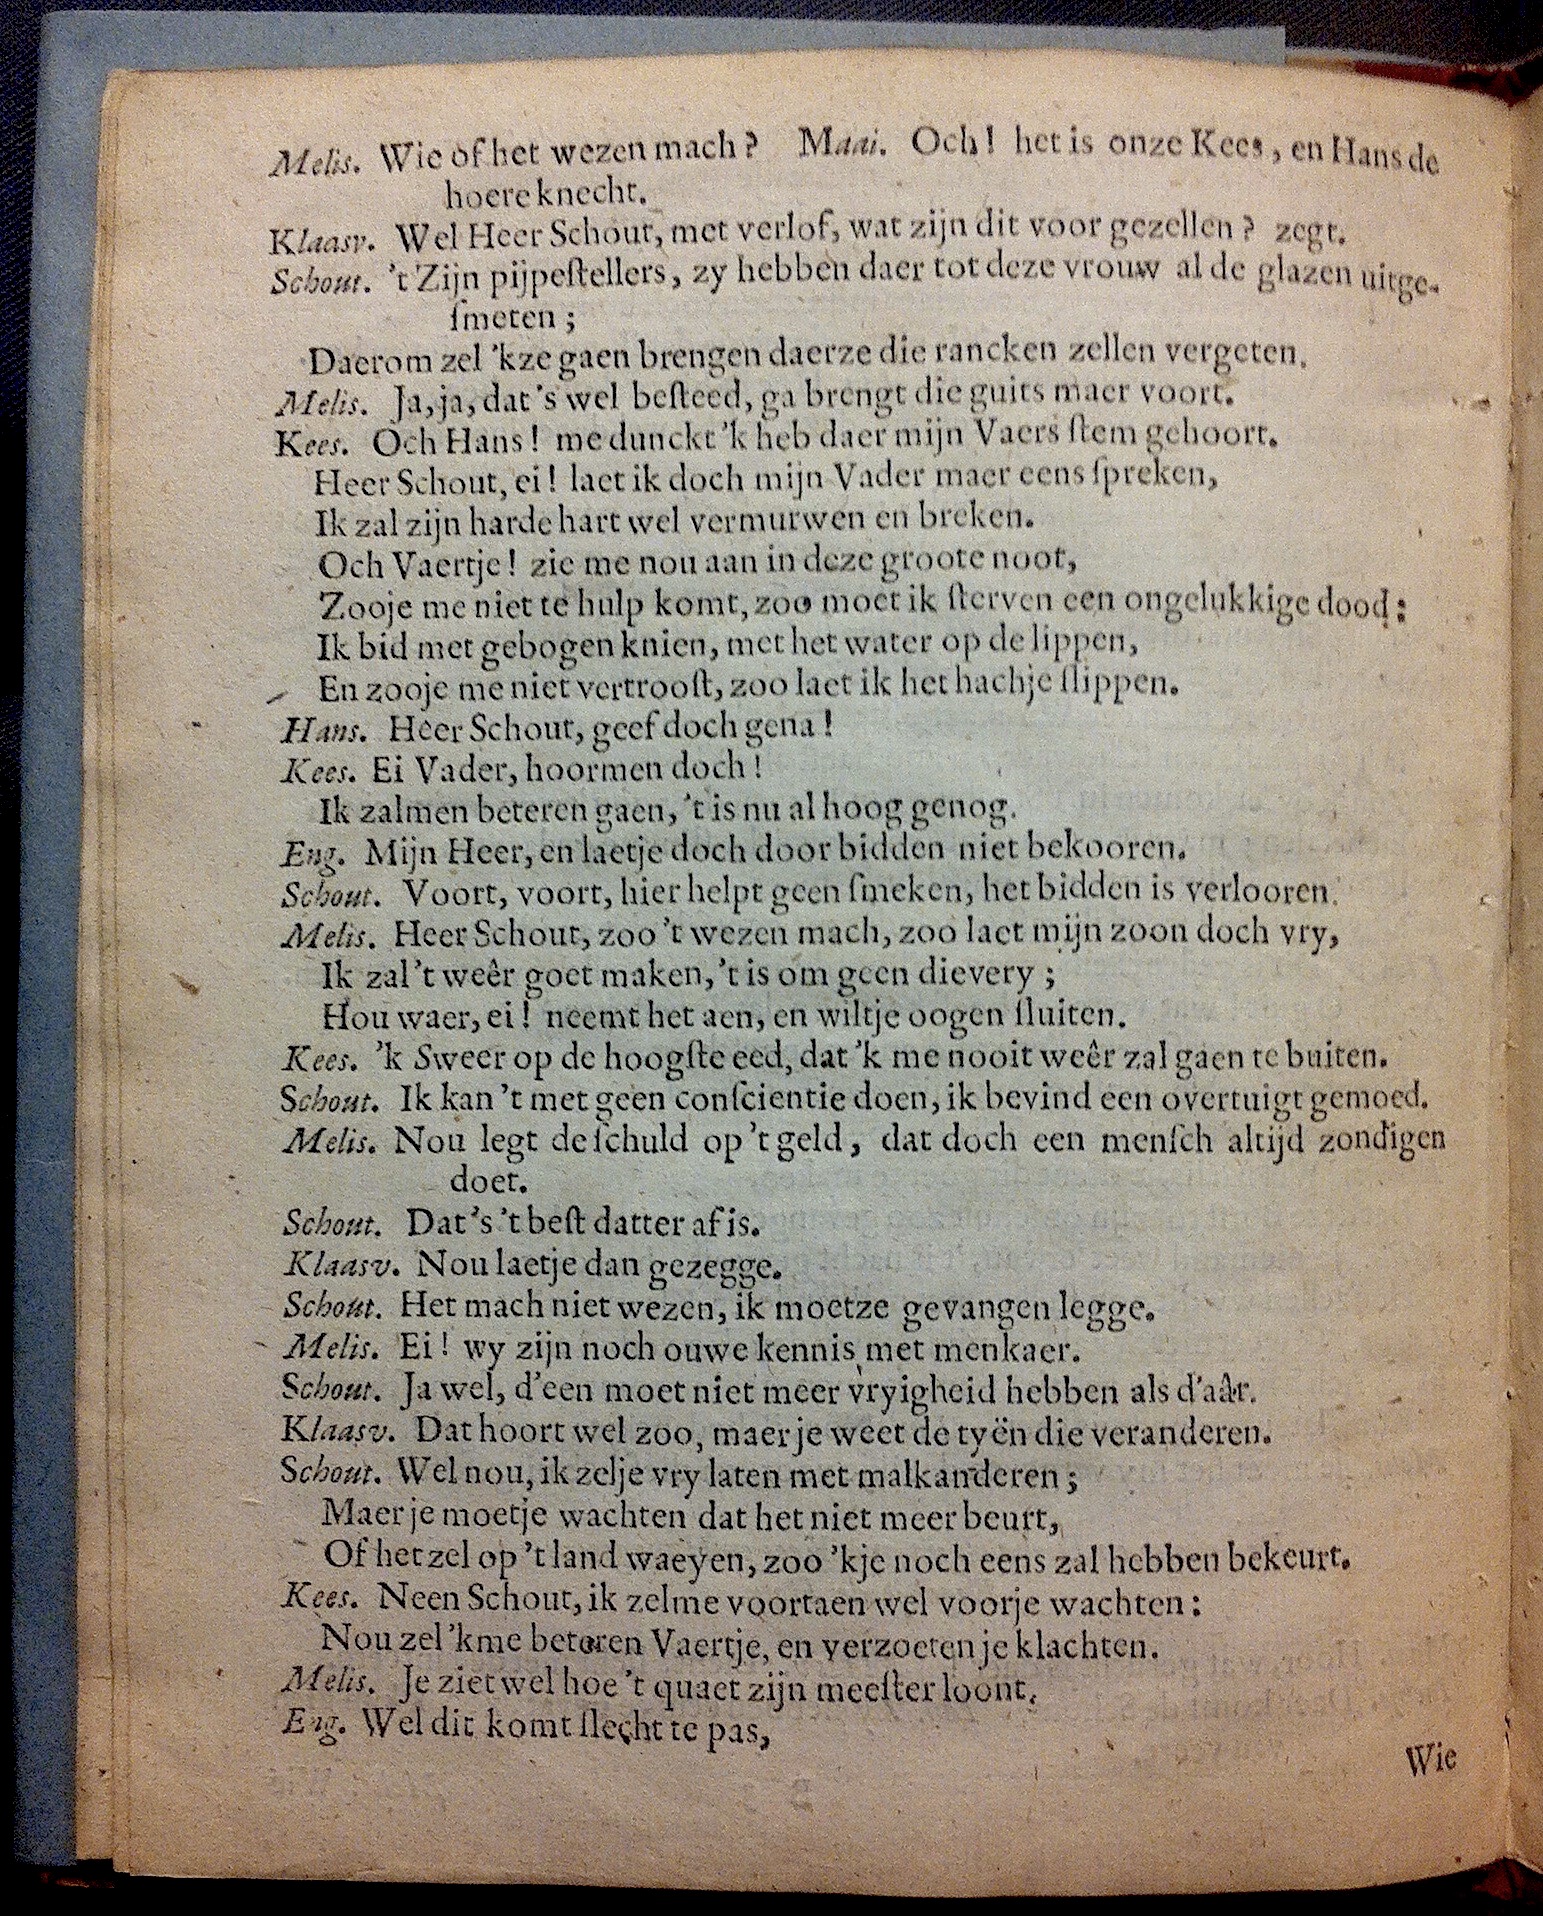 Melis. Wie of het wezen mach? Maai. Och! het is onze Kees, en Hans de
hoere knecht.
Klaasv. Wel Heer Schout, met verlof, wat zijn dit voor gezellen? zegt.
Schout. 't Zijn pijpeſtellers, zy hebben daer tot deze vrouw al de glazen uitge-
ſmeten;
Daerom zel 'kze gaen brengen daerze die rancken zellen vergeten.
Melis. Ja, ja, dat 's wel beſteed, ga brengt die guits maer voort.
Kees. Och Hans! me dunckt 'k heb daer mijn Vaers ſtem gehoort.
Heer Schout, ei! laet ik doch mijn Vader maer eens ſpreken,
Ik zal zijn harde hart wel vermurwen en breken.
Och Vaertje! zie me nou aan in deze groote noot,
Zooje me niet te hulp komt, zoo moet ik ſterven een ongelukkige dood:
Ik bid met gebogen knien, met het water op de lippen,
En zooje me niet vertrooſt, zoo laet ik het hachje ſlippen.
Hans. Heer Schout, geef doch gena!
Kees. Ei Vader, hoormen doch!
Ik zalmen beteren gaen, 't is nu al hoog genog.
Eng. Mijn Heer, en laetje doch door bidden niet bekooren.
Schout. Voort, voort, hier helpt geen ſmeken, het bidden is verlooren.
Melis. Heer Schout, zoo 't wezen mach, zoo laet mijn zoon doch vry,
Ik zal 't weêr goet maken, 't is om geen dievery;
Hou waer, ei! neemt het aen, en wiltje oogen ſluiten.
Kees. 'k Sweer op de hoogſte eed, dat 'k me nooit weêr zal gaen te buiten.
Schout. Ik kan 't met geen conſcientie doen, ik bevind een overtuigt gemoed.
Melis. Nou legt de ſchuld op 't geld, dat doch een menſch altijd zondigen
doet.
Schout. Dat 's 't beſt datter af is.
Klaasv. Nou laetje dan gezegge.
Schout. Het mach niet wezen, ik moetze gevangen legge.
Melis. Ei! wy zijn noch ouwe kennis met menkaer.
Schout. Ja wel, d'een moet niet meer vryigheid hebben als d'aâr.
Klaasv. Dat hoort wel zoo, maer je weet de tyën die veranderen.
Schout. Wel nou, ik zelje vry laten met malkanderen;
Maer je moetje wachten dat het niet meer beurt,
Of het zel op 't land waeyen, zoo 'kje noch eens zal hebben bekeurt.
Kees. Neen Schout, ik zelme voortaen wel voorje wachten:
Nou zel 'kme beteren Vaertje, en verzoeten je klachten.
Melis. Je ziet wel hoe 't quaet zijn meeſter loont.
Eng. Wel dit komt ſlecht te pas,
Wie